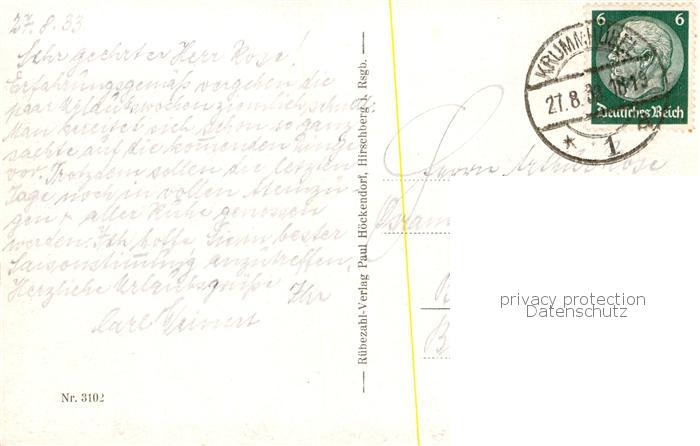 27.8.33
Sehr geehrter Herr Rose!
Erfahrungsgemäß vergehen die
paar Urlaubswochen ziemlich schnell.
Man bereitet sich schon so ganz
sachte auf die kommenden Dinge
vor. Trotzdem sollen die letzten
Tage noch in vollen Atemzü-
gen & aller Ruhe genossen
werden. Ich hoffe Sie in bester
Saisonstimmung anzutreffen.
Herzliche Urlaubsgrüße
Ihr
Carl
Nr. 3102
Rübezahl-Verlag Paul Höckendorf, Hirschberg i. Rsgb.
6 6
Deutsches Reich
KRUMMHÜBEL
27.8.33 18-19
* 1
Herrn Arthur Rose
Osram
B
B
privacy protection
Datenschutz